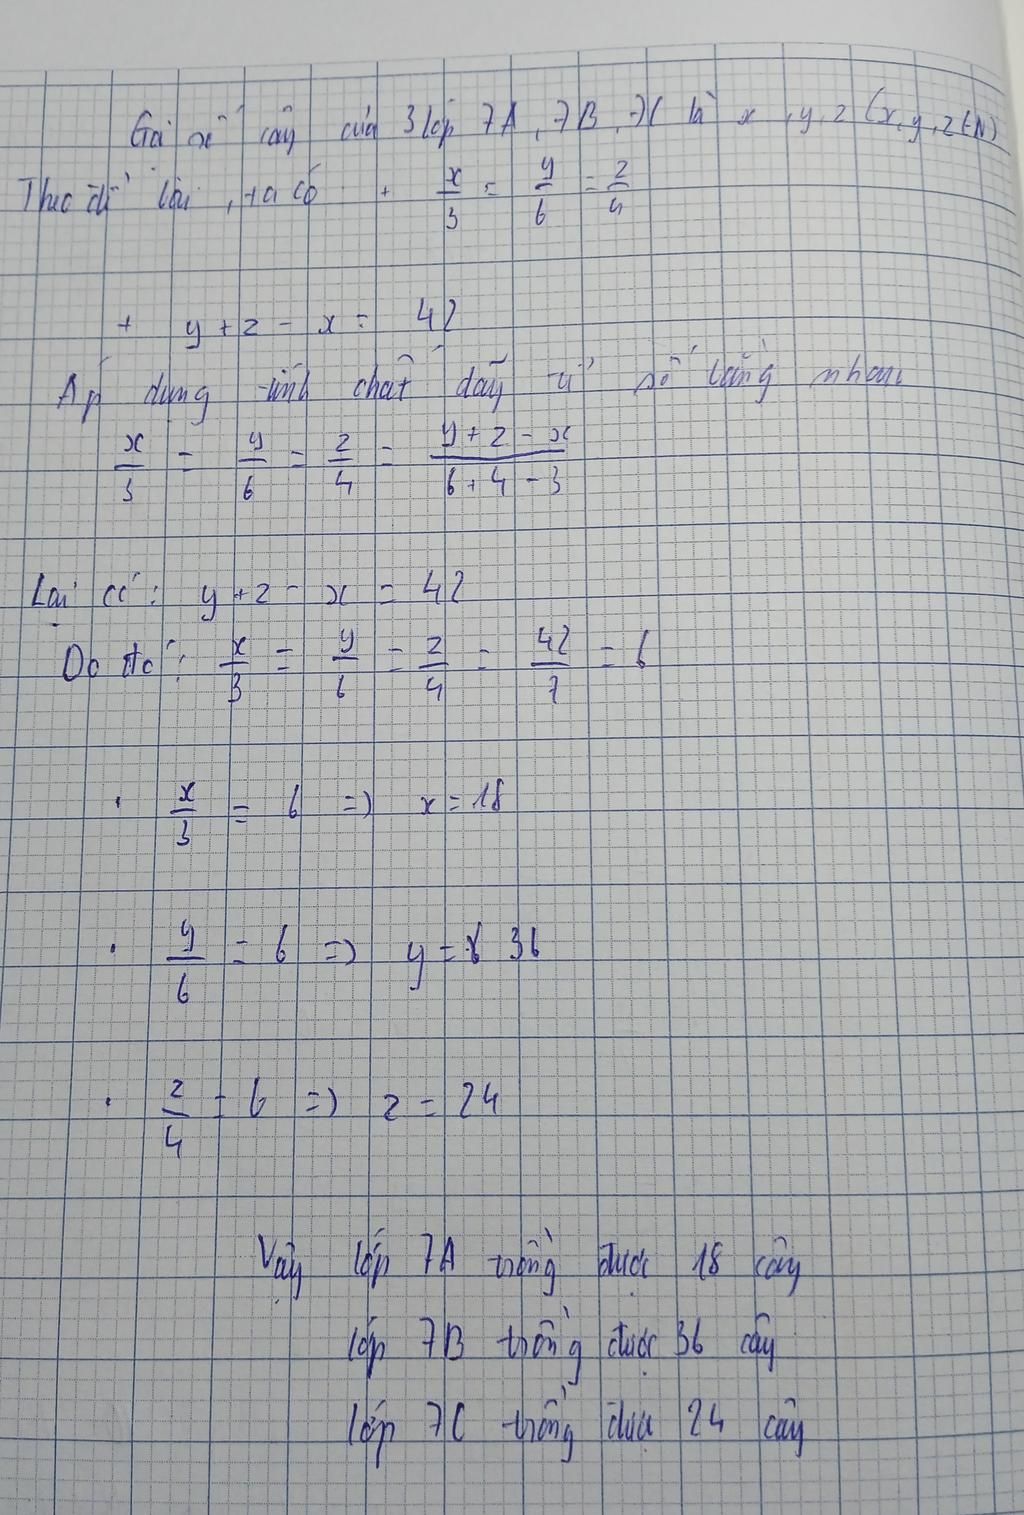 Gọi số cây của 3 lớp 7A, 7B, 7C là x, y, z (x, y, z ∈ N)
Theo đề bài, ta có + x/3 = y/6 = z/4
+ y + z - x = 42
Áp dụng tính chất dãy tỉ số bằng nhau
x/3 = y/6 = z/4 = (y + z - x)/(6 + 4 - 3)
Lại có: y + z - x = 42
Do đó: x/3 = y/6 = z/4 = 42/7 = 6
. x/3 = 6 => x = 18
. y/6 = 6 => y = 36
. z/4 = 6 => z = 24
Vậy lớp 7A trồng được 18 cây
lớp 7B trồng được 36 cây
lớp 7C trồng được 24 cây